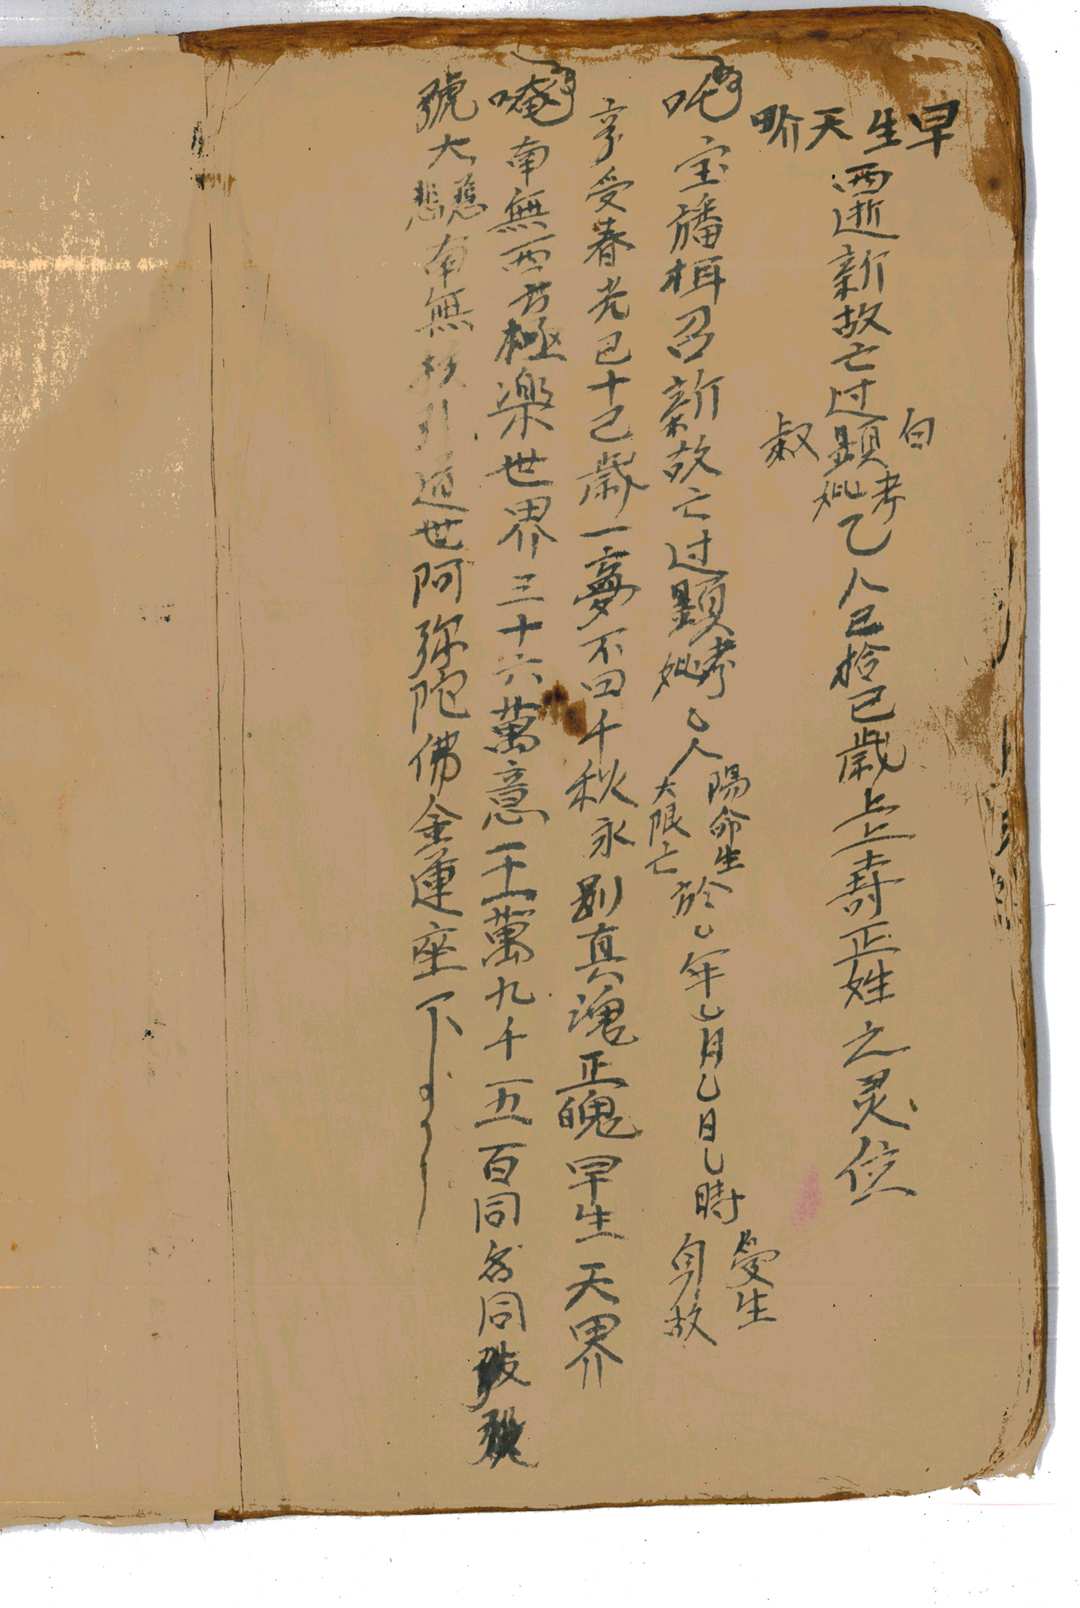 早生天界
西逝新故亡过顕考妣乙人已拾已歳上上壽正姓之灵位
白
叔
唵宝旛相召新故亡过顕考妣乙人陽命生大限亡於乙年乙月乙日乙時受生身故
享受春光已十已歳一夢不回千秋永别真魂正魄早生天界
唵南無西方極楽世界三十六萬意一十一萬九千五百同名同號
號大慈悲南無接引道世阿弥陀佛金蓮座下